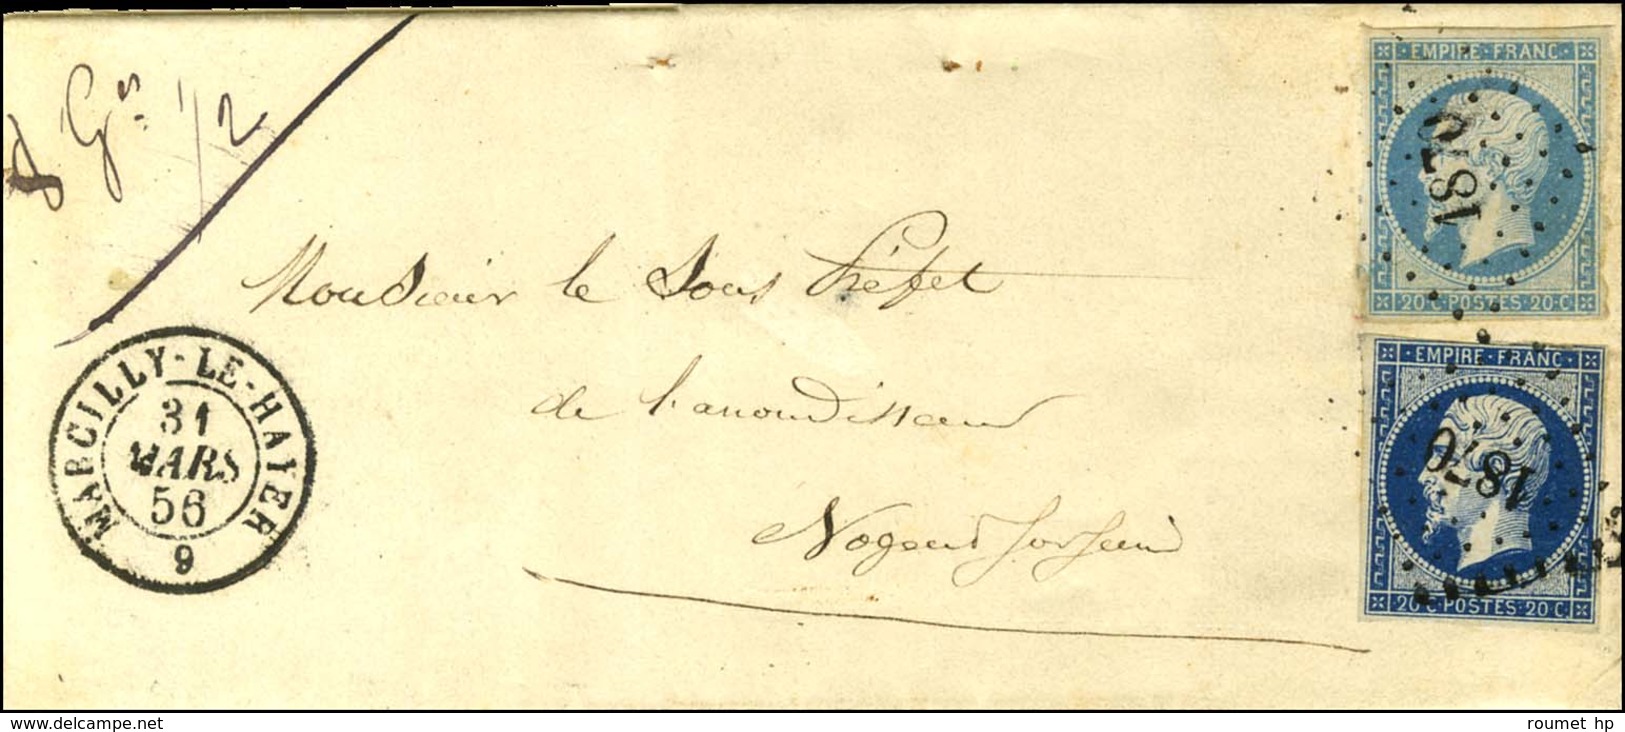 8 Ges 1/2
EMPIRE·FRANC·
1870
20·C·POSTES·20·C·
Monsieur le Sous Préfet
de l'arrondissement
Nogent sur Seine
MARCILLY-LE-HAYER
31
MARS
56
9
EMPIRE·FRANC·
1870
20·C·POSTES·20·C·
www.delcampe.net
roumet hp